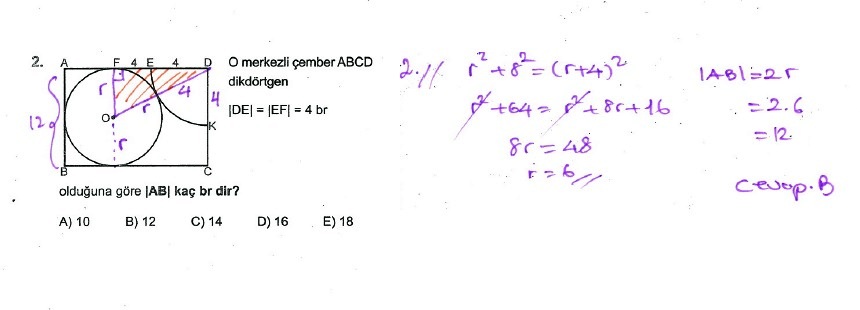 2.
A F 4 E 4 D
O merkezli çember ABCD
dikdörtgen
|DE| = |EF| = 4 br
r 4 4
r
O
K
12
r
B C
olduğuna göre |AB| kaç br dir?
A) 10 B) 12 C) 14 D) 16 E) 18
2.//
r² + 8² = (r+4)²
r² + 64 = r² + 8r + 16
8r = 48
r = 6//
|AB| = 2r
= 2.6
= 12
Cevap.B